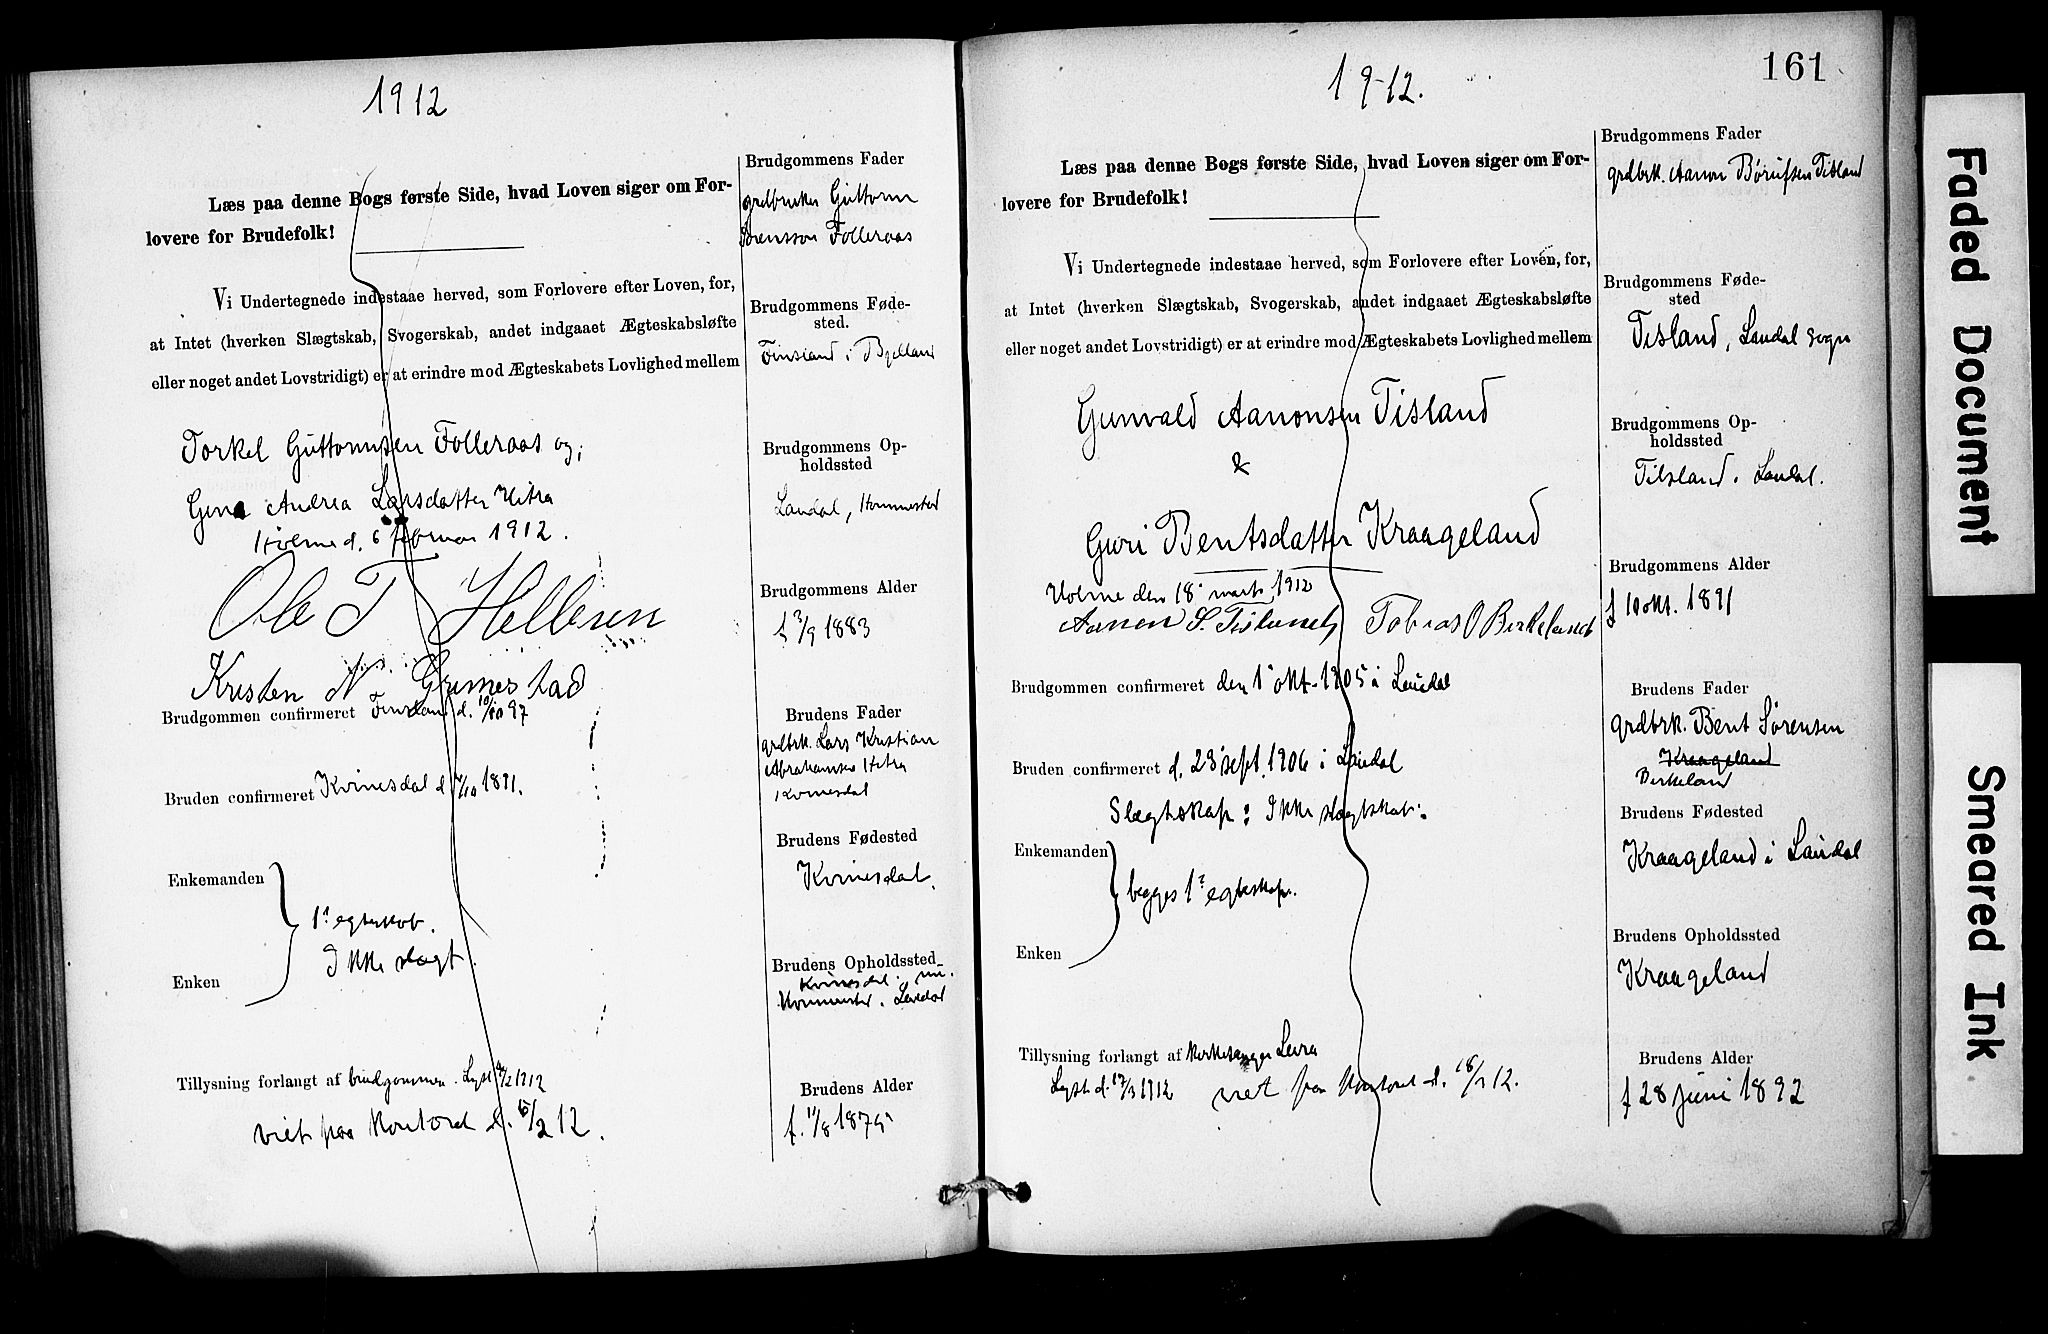 1912
Læs paa denne Bogs første Side, hvad Loven siger om For-
lovere for Brudefolk!
Vi Undertegnede indestaae herved, som Forlovere efter Loven, for,
at Intet (hverken Slægtskab, Svogerskab, andet indgaaet Ægteskabsløfte
eller noget andet Lovstridigt) er at erindre mod Ægteskabets Lovlighed mellem
Torkel Guttormsen Folleraas og,
Gina Andrea Larsdatter Hitra
Holme d. 6 februar 1912.
Ole T Helleren
Kristen N. Grimestad
Brudgommen confirmeret Finsland d. 10/10 97
Bruden confirmeret Kvinesdal d. /10 1891.
Enkemanden
1ste egteskab.
Ikke slegt.
Enken
Tillysning forlangt af brudgommen. Lyst /2 1912
viet paa kontoret d. /2 12.
Brudgommens Fader
grdbruker Guttorm
Folleraas
Brudgommens Føde-
sted.
Finsland i Bjelland
Brudgommens Op-
holdssted
Laudal,
Brudgommens Alder
f. 3/9 1883
Brudens Fader
grdbrk. Lars Kristian
Abrahamsen Hitra
Kvinesdal
Brudens Fødested
Kvinesdal.
Brudens Opholdssted
Kvinesdal. nu.
Laudal
Brudens Alder
f. 11/8 1875
1912.
161
Læs paa denne Bogs første Side, hvad Loven siger om For-
lovere for Brudefolk!
Vi Undertegnede indestaae herved, som Forlovere efter Loven, for,
at Intet (hverken Slægtskab, Svogerskab, andet indgaaet Ægteskabsløfte
eller noget andet Lovstridigt) er at erindre mod Ægteskabets Lovlighed mellem
Gunvald Aanonsen Tisland
&
Guri Bentsdatter Kraageland
Holme den 18 marts 1912
Aanen S. Tisland, Tobias O Birkeland
Brudgommen confirmeret den 1 okt. 1905 i Laudal
Bruden confirmeret d. 23 sept. 1906 i Laudal
Slægtskap: Ikke slægtskab.
Enkemanden
begges 1ste egteskap.
Enken
Tillysning forlangt af kirkesanger Leira
Lyst d. 17/3 1912 viet paa kontoret d. 18/3 12.
Brudgommens Fader
grdbrk. Aanon Tisland
Brudgommens Føde-
sted
Tisland, Laudal sogn
Brudgommens Op-
holdssted
Tisland. Laudal.
Brudgommens Alder
f 10 okt. 1891
Brudens Fader
grdbrk. Bent Sørensen
Kraageland
Birkeland
Brudens Fødested
Kraageland i Laudal
Brudens Opholdssted
Kraageland
Brudens Alder
f 28 juni 1892
Faded Document
Smeared Ink